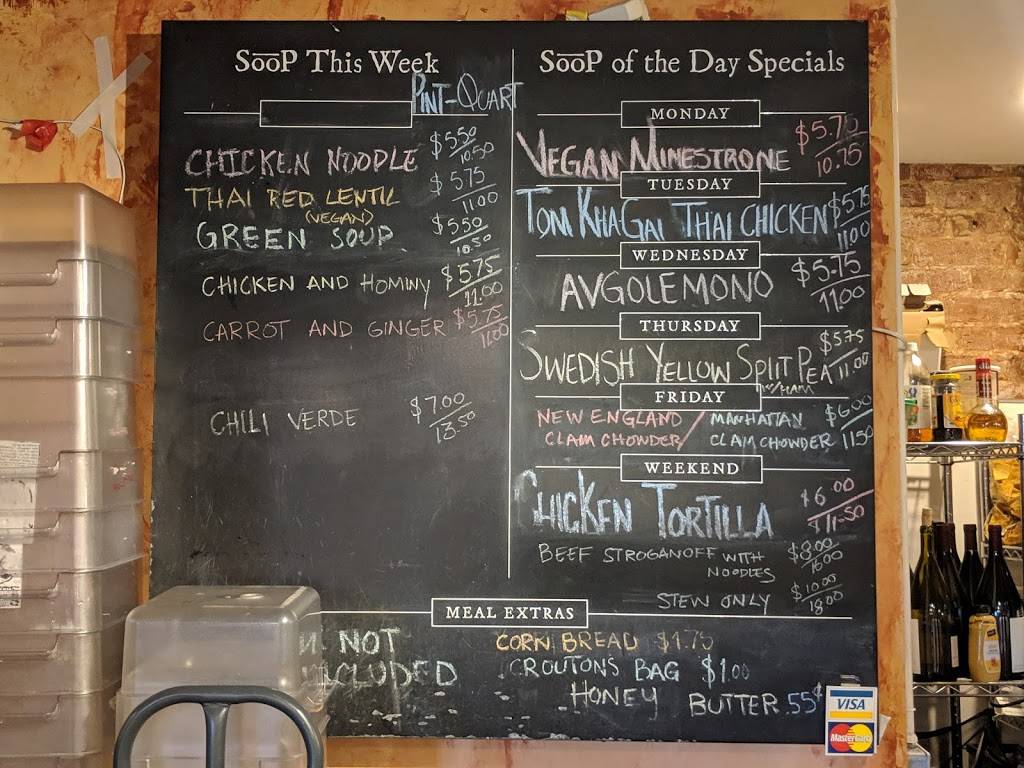 SooP This Week
PINT-QUART
CHICKEN NOODLE $5.50 / 10.50
THAI RED LENTIL $5.75 / 11.00
(VEGAN)
GREEN SOUP $5.50 / 10.50
CHICKEN AND HOMINY $5.75 / 11.00
CARROT AND GINGER $5.75 / 11.00
CHILI VERDE $7.00 / 13.50
SooP of the Day Specials
MONDAY
VEGAN MINESTRONE $5.75 / 10.75
TUESDAY
TOM KHA GAI THAI CHICKEN $5.75 / 11.00
WEDNESDAY
AVGOLEMONO $5.75 / 11.00
THURSDAY
SWEDISH YELLOW SPLIT PEA $5.75 / 11.00
W/HAM
FRIDAY
NEW ENGLAND / MANHATTAN $6.00
CLAM CHOWDER / CLAM CHOWDER 11.50
WEEKEND
CHICKEN TORTILLA $6.00 / 11.50
BEEF STROGANOFF WITH $8.00
NOODLES 16.00
STEW ONLY $10.00 / 18.00
MEAL EXTRAS
NOT
CORN BREAD $1.75
CROUTONS BAG $1.00
HONEY BUTTER .55¢
VISA
MasterCard